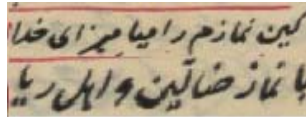 کین نمازم را میامیز ای خدا
با نماز ضالین و اهل ریا